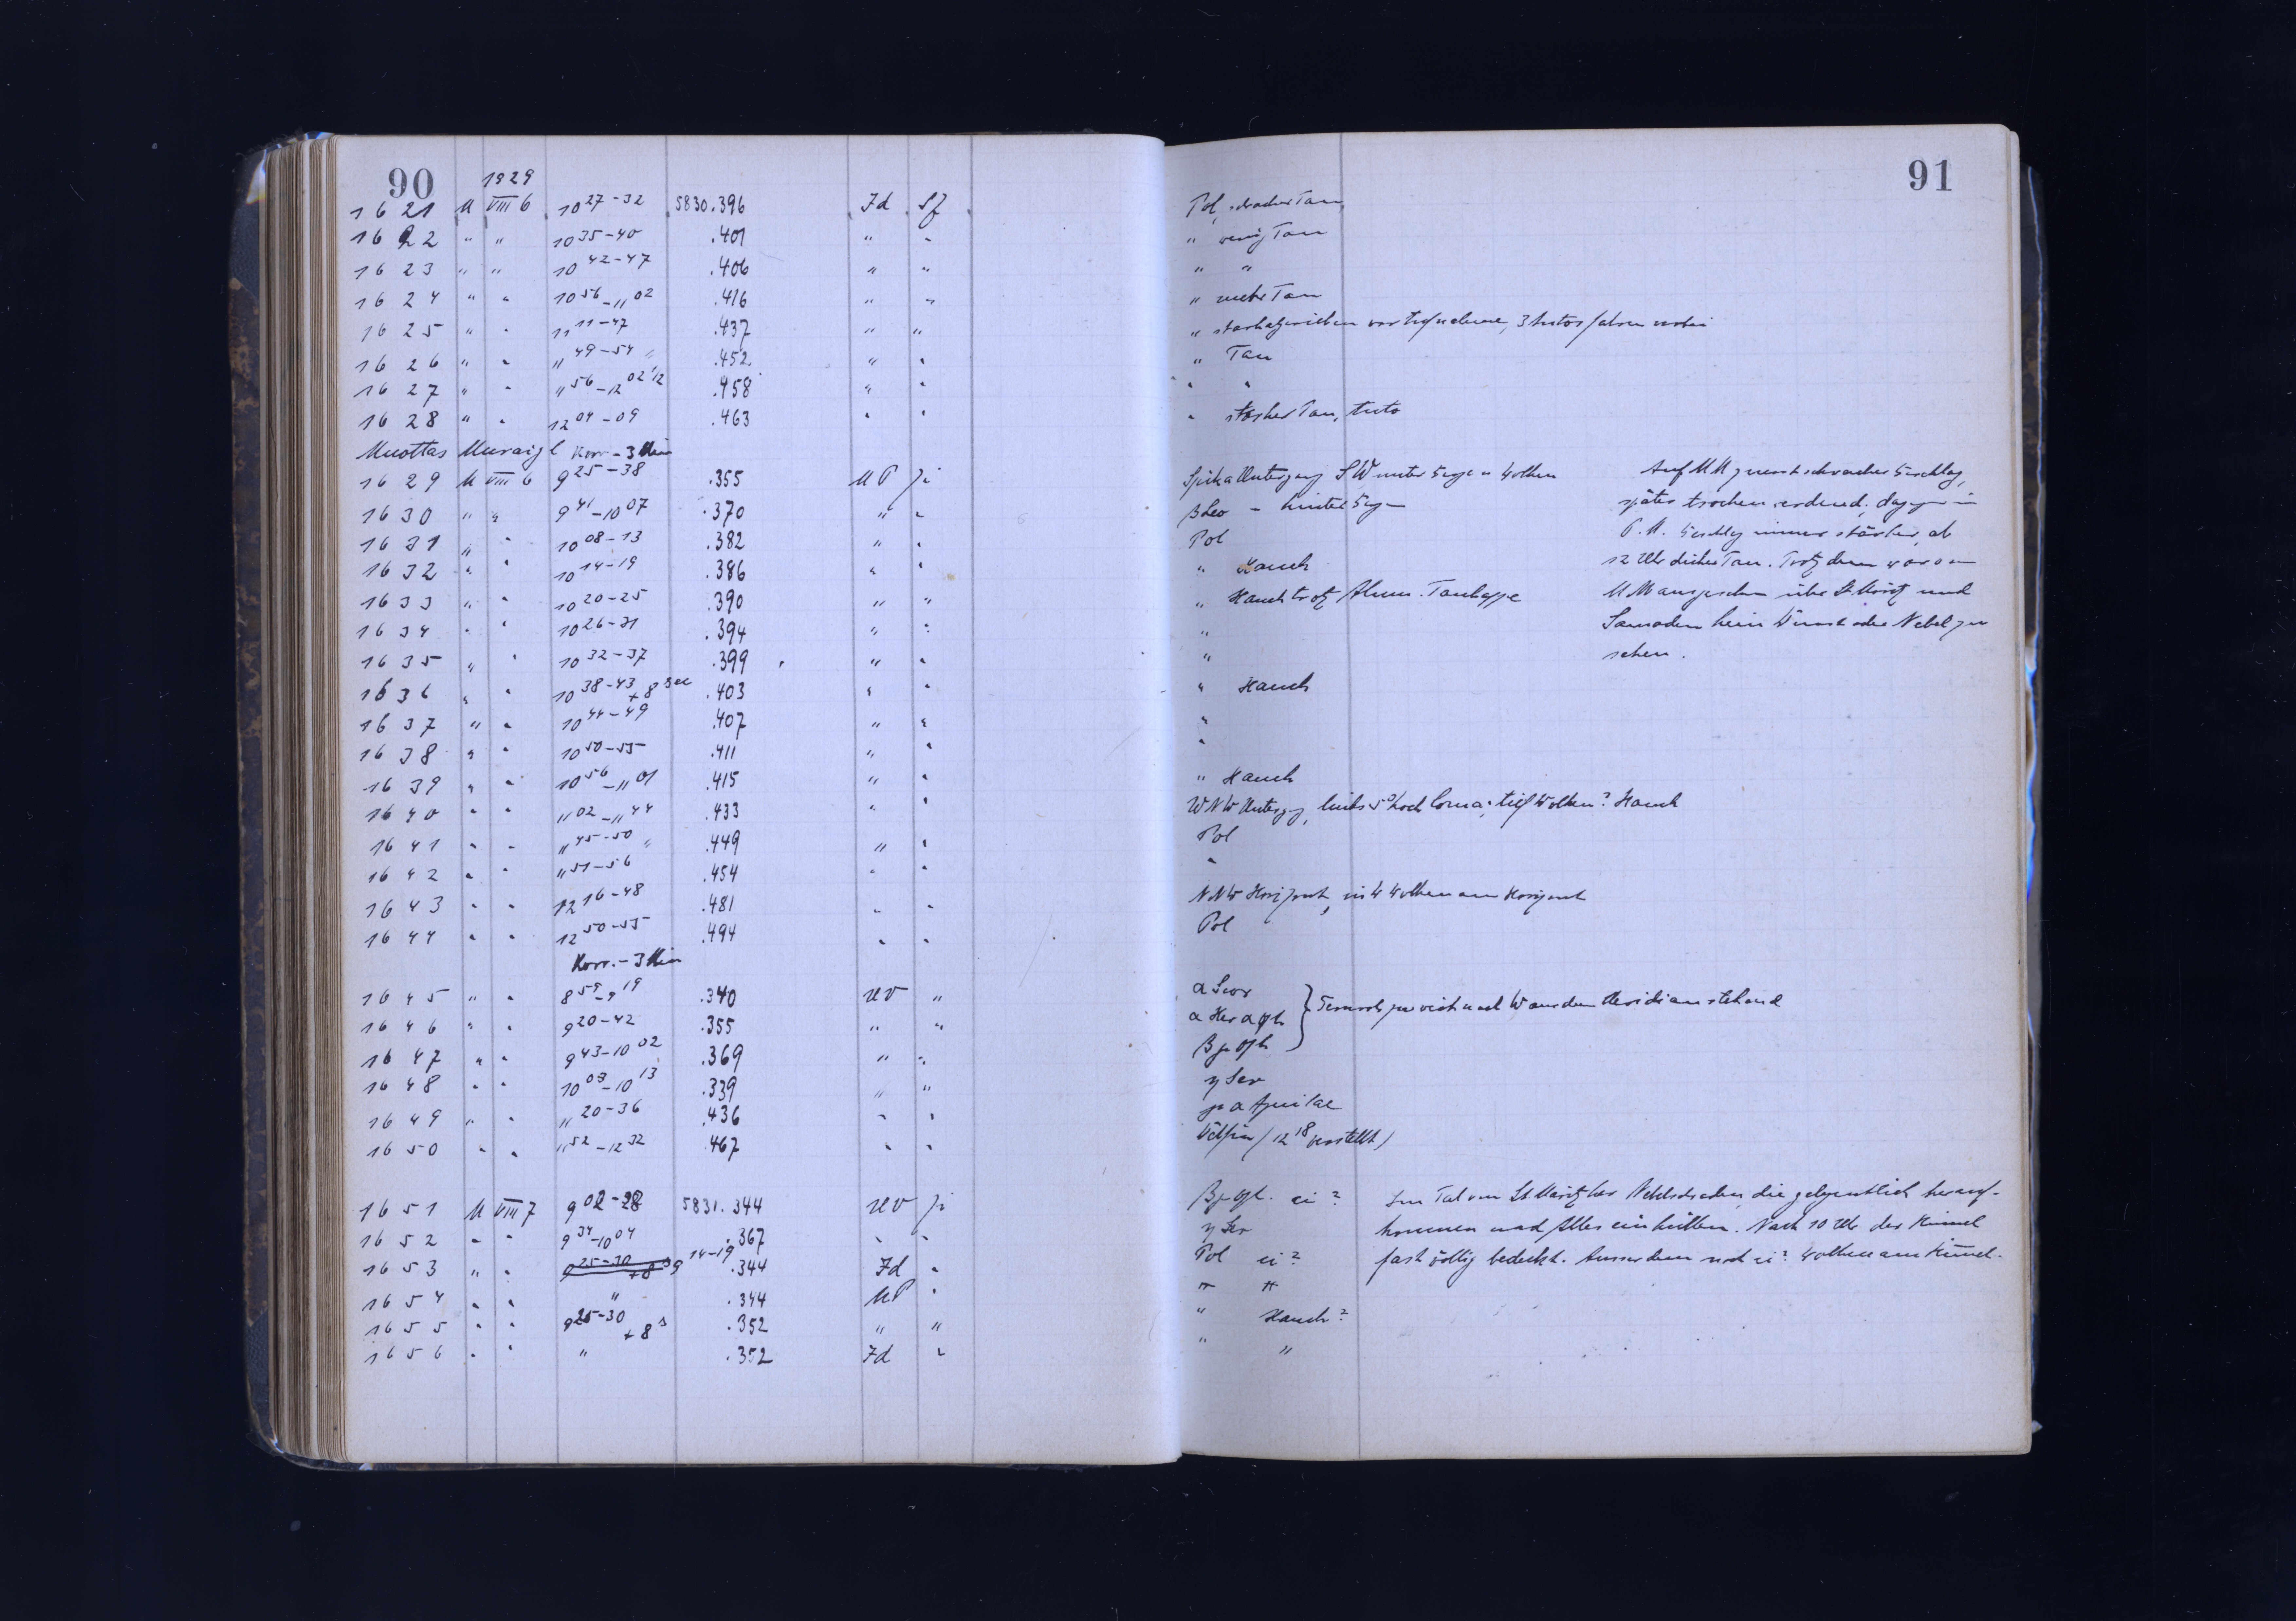 90
1929
1621 M VIII 6 10 27-32 5830.396 Jd Sf
1622 " " 10 35-40 .401 " "
1623 " " 10 42-47 .406 " "
1624 " " 10 56-11 02 .416 " "
1625 " " 11 11-47 .437 " "
1626 " " " 49-54 .452 " "
1627 " " " 56-12 02 .458 " "
1628 " " 12 04-09 .463 " "
Muottas Muraigl Korr - 3 Min
1629 M VIII 6 9 25-38 .355 UP ji
1630 " " 9 41-10 07 .370 " "
1631 " " 10 08-13 .382 " "
1632 " " 10 14-19 .386 " "
1633 " " 10 20-25 .390 " "
1634 " " 10 26-31 .394 " "
1635 " " 10 32-37 .399 " "
1636 " " 10 38-43 +8 sec .403 " "
1637 " " 10 44-49 .407 " "
1638 " " 10 50-55 .411 " "
1639 " " 10 56-11 01 .415 " "
1640 " " 11 02-11 44 .433 " "
1641 " " " 45-50 .449 " "
1642 " " " 51-56 .454 " "
1643 " " 12 16-48 .481 " "
1644 " " 12 50-55 .494 " "
Korr. - 3 Min
1645 " " 8 59-9 19 .340 UV "
1646 " " 9 20-42 .355 " "
1647 " " 9 43-10 02 .369 " "
1648 " " 10 03-10 13 .339 " "
1649 " " " 20-36 .436 " "
1650 " " " 52-12 32 .467 " "
1651 M VIII 7 9 02-28 5831.344 UV ji
1652 " " 9 34-10 04 .367 " "
1653 " " 9 25-30 +8 s 9 14-19 .344 Jd "
1654 " " " .344 UP "
1655 " " 9 25-30 +8 s .352 " "
1656 " " " .352 Jd "
91
Pol, schwacher Tau
" wenig Tau
" "
" mehr Tau
" vor Aufnahme, 3 Autos fahren vorbei
" Tau
" "
" starker Tau, Auto
Spika Untergang SW unter Berge u Wolken
β Leo - hinter Berge
Pol
" Hauch
" Hauch trotz Alum. Taukappe
"
"
" Hauch
"
"
" Hauch
WNW Untergg, links 5° hoch Coma, tief Wolken? Hauch
Pol
"
NNW Horizont, in W Wolken am Horizont
Pol
Auf MM zuerst schwacher Beschlag,
später trocken werdend, dagegen in
P.M. Beschlag immer stärker, ab
12 Uhr dicker Tau. Trotzdem war von
MM aus gesehen über St Moritz und
Samaden kein Dunst oder Nebel zu
sehen.
α Scor
α Her α Oph
β γ Oph
zu weit nach W aus dem Meridian stehend
η Ser
γ α Aquilae
Delfin (12 18 verstellt)
β γ Oph. ci?
η Ser
Pol ci?
" "
" Hauch?
" "
Im Tal von St Moritz her Nebelschwaden, die gelegentlich herauf-
kommen und Alles einhüllen. Nach 10 Uhr der Himmel
fast völlig bedeckt. Ausserdem noch ci? Wolken am Himmel.